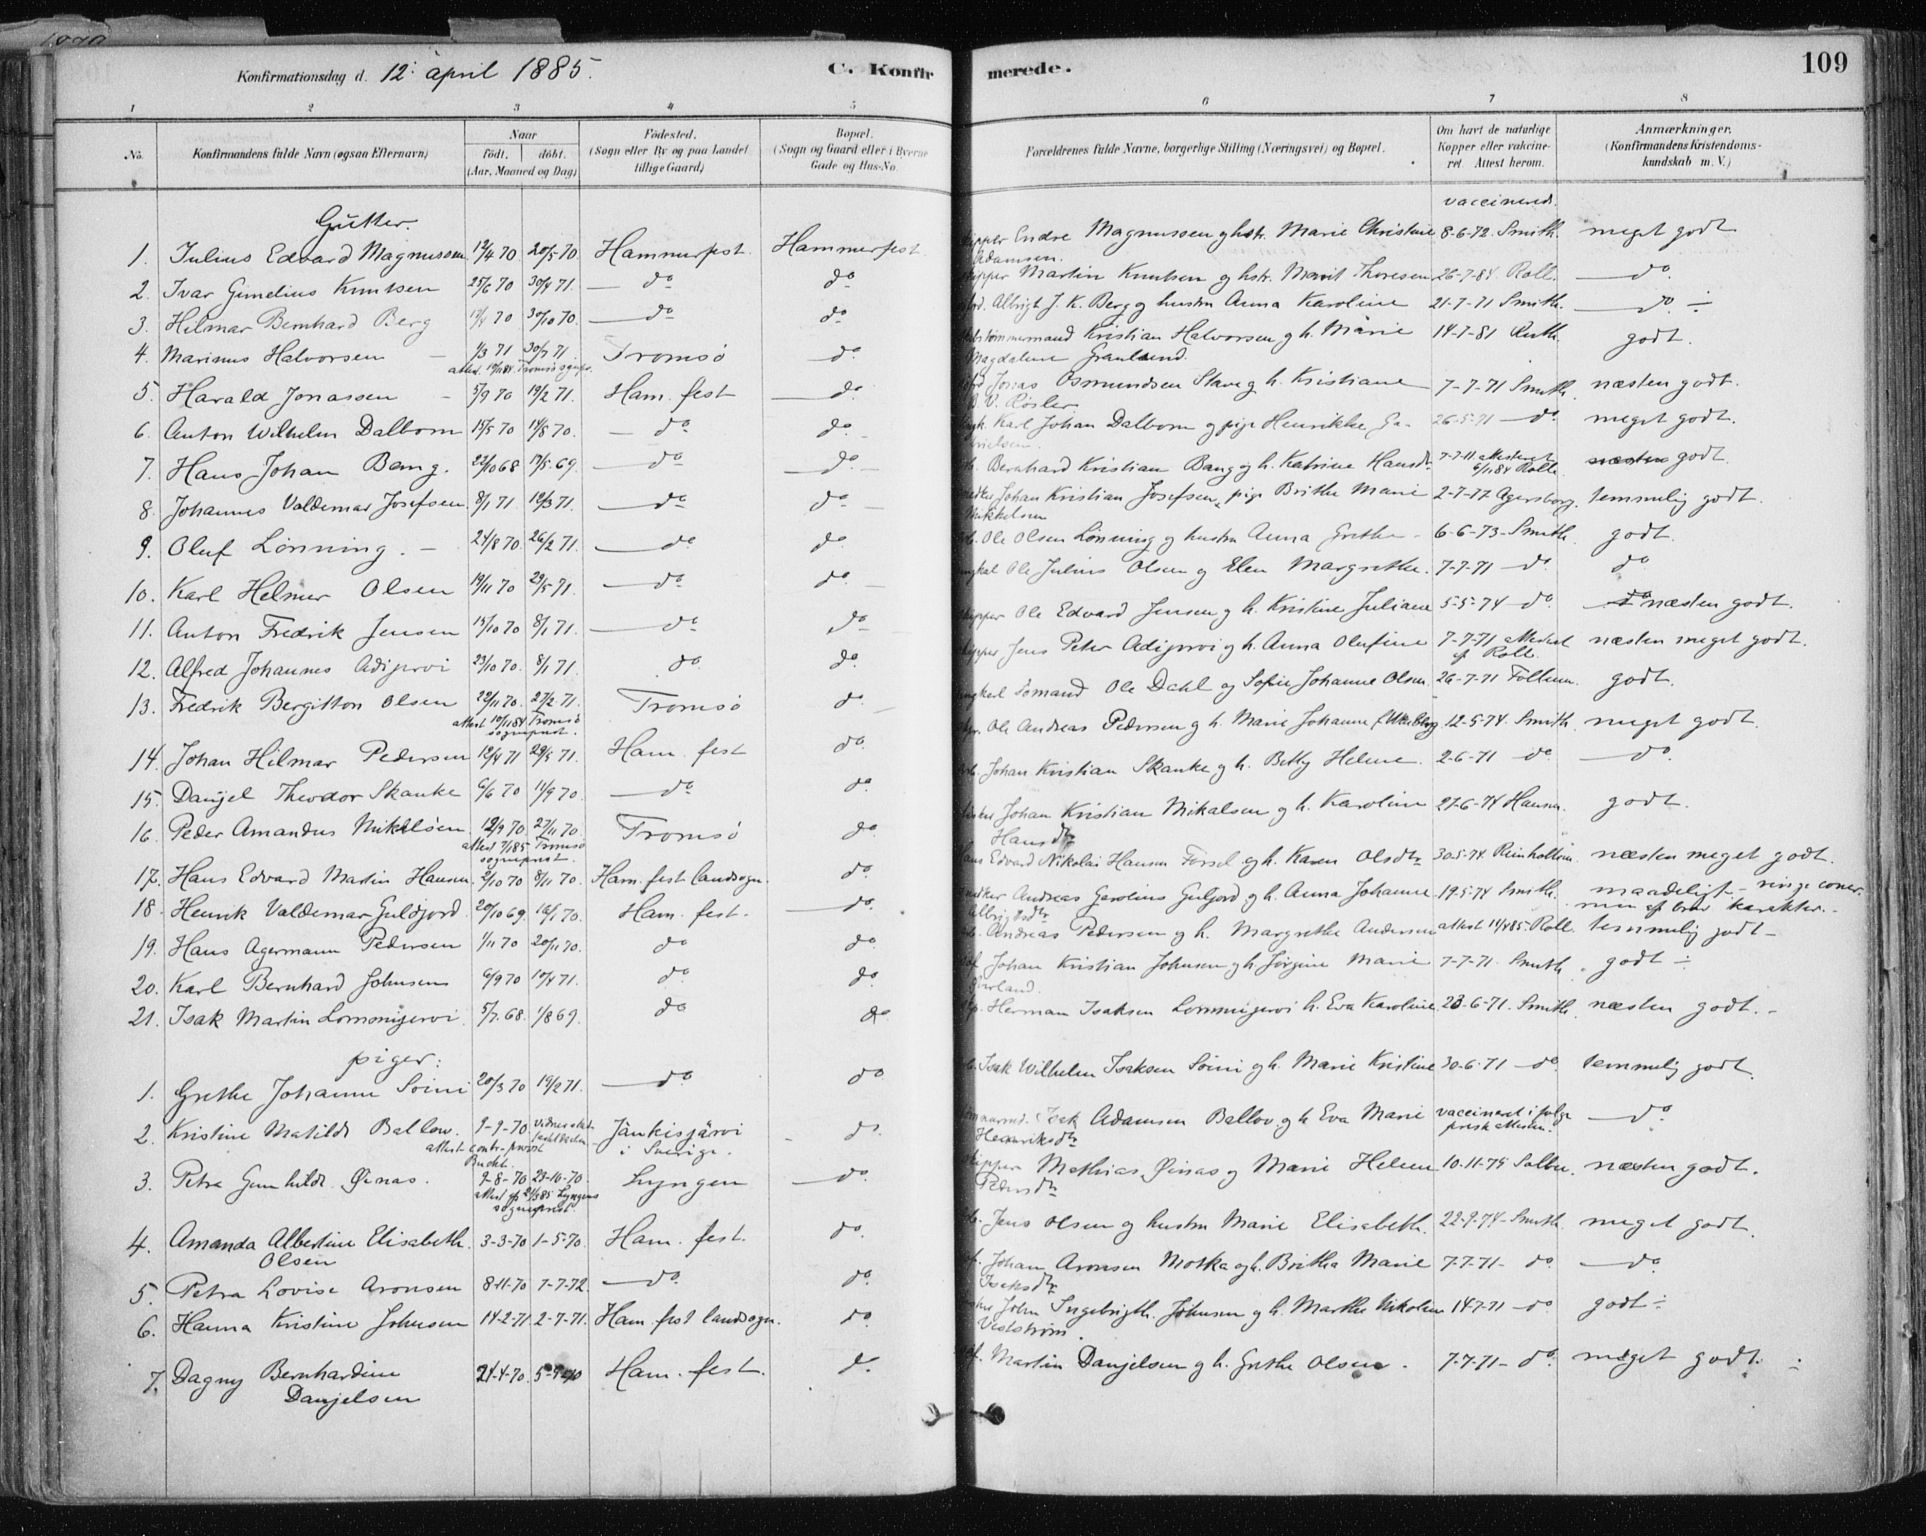 Konfirmationsdag d. 12. april 1885.
C. Konfirmerede.
109
1 2 3 4 5 6 7 8
No.
Konfirmandens fulde Navn (ogsaa Efternavn)
Naar
födt. döbt.
(Aar, Maaned og Dag)
Födested.
(Sogn eller By og paa Landet tillige Gaard)
Bopæl.
(Sogn og Gaard eller i Byerne Gade og Hus-No.
Forældrenes fulde Navne, borgerlige Stilling (Næringsvei) og Bopæl.
Om havt de naturlige Kopper eller vakcineret. Attest herom.
Anmærkninger.
(Konfirmandens Kristendomskundskab m. V.)
vaccinered.
Gutter.
1. Julius Edvard Magnussen 12/4 70 20/5 70 Hammerfest. Hammerfest. Endre Magnussen og hstr. Marie Christine Adamsen. 8-6-72. Smith. meget godt
2. Ivar Gunelius Knutsen 25/6 70 30/4 71. do do Martin Knutsen og hstr. Marit Thoresen 26-7-84. Roll. do
3. Hilmar Bernhard Berg 30/10 70. do do Albrigt J. K. Berg og hustru Anna Karoline 21-7-71 Smith. do ÷
4. Marinus Halvorsen 1/3 71 30/7 71. Tromsö do Tømmermand Kristian Halvorsen og h. Marie Magdalene 14-7-81 godt.
5. Harald Jonassen 5/9 70 19/2 71. Ham. fest do. Jonas Osmundsen Stave og h. Kristiane Røsler 7-7-71 Smith. næsten godt.
6. Anton Wilhelm Dalbom 15/5 70 14/8 70. do do. Karl Johan Dalbom og pige Henrikke 26-5-71 do. meget godt.
7. Hans Johan Bang. 22/10 68 17/5 69. do do. Bernhard Kristian Bang og h. Katrine Hansdtr 7-7-71 attesteret 6/11 84 Roll. godt.
8. Johannes Valdemar Josefsen 8/1 71 12/3 71. do do. Johan Kristian Josefsen, pige Brithe Marie Mikkelsen 2-7-77 Agersborg. temmelig godt.
9. Oluf Lönning. 24/8 70. 26/2 71. do do. Ole Olsen Lönning og hustru Anna Grethe 6-6-73 Smith. godt.
10. Karl Helmer Olsen 19/11 70 29/5 71. do do. Ole Julius Olsen og Elen Margrethe. 7-7-71 do. do.
11. Anton Fredrik Jensen 15/10 70 8/1 71. do do Ole Edvard Jensen og h. Kristine Juliane 5-5-74 do. næsten godt.
12. Alfred Johannes Adijervi 23/10 70. 8/1 71. do. do. Jens Peter Adijervi og h. Anna Olufine 7-7-71 attestert af Roll. næsten meget godt.
13. Fredrik Bergitton Olsen 22/11 70. 27/2 71. Tromsö do. Sömand Ole Dahl og Sofie Johanne Olsen. 26-7-71 godt.
attest 10/11 84 Tromsö sogneprest.
14. Johan Hilmar Pedersen 12/4 71 29/5 71. Ham. fest do. Ole Andreas Pedersen og h. Marie Johanne 12-5-74. Smith. meget godt.
15. Danjel Theodor Skanke 6/6 70 11/9 70. do. do. Johan Kristian Skanke og h. Betty Helene. 2-6-71 do do.
16. Peder Amandus Mikalsen. 12/9 70. 27/11 70. Tromsö do Johan Kristian Mikalsen og h. Karoline Hansdtr 27-6-74 Hansen. godt.
attest 7/1 85 Tromsö sogneprest.
17. Hans Edvard Martin Hansen. 2/10 70 8/11 70. Ham. fest landsogn. do. Edvard Nikolai Hansen Forsel og h. Karen Olsdtr 30-5-74. næsten meget godt.
18. Henrik Valdemar Guldjord. 20/10 69. 16/1 70. Ham. fest. do. Andreas Gerolius Guljord og h. Anna Johanne Albrigtsdtr 19-5-74 Smith. maadeligt - ringe evner. men af brav karakter.
19. Hans Agermann Pedersen 1/11 70 20/11 70. do do. Andreas Pedersen og h. Margrethe Andersen attest 11/4 85. Roll. temmelig godt
20. Karl Bernhard Johnsen 6/9 70 10/4 71. do do. Johan Kristian Johnsen og h. Jörgine Marie 7-7-71. Smith. godt ÷
21. Isak Martin Lommijervi. 5/7 68. 1/8 69. do do. Herman Isaksen Lommijervi h. Eva Karoline 23-6-71. Smith. næsten godt.
piger:
1. Grethe Johanne Soini 20/3 70 19/2 71. do. do Isak Wilhelm Isaksen Soini og h. Marie Kristine 30-6-71 do. temmelig godt.
2. Kristine Matilde Ballow. 9-9-70. Jänkisjärvi i Sverige. do. Isak Adamsen Ballov og h. Eva Marie Henriksdtr vaccineret ifølge do.
3. Petra Gunhilde Øinas. 9-8-70 23-10-70 Lyngen do. Mathias Øinas og Marie Helene Pedersdtr 10-11-75 næsten godt.
attest af 21/3 85 Lyngens sogneprest.
4. Amanda Albertine Elisabeth Olsen 3-3-70 1-5-70. Ham. fest. do. Jens Olsen og hustru Marie Elisabeth. 22-9-74. Smith. meget godt.
5. Petra Lovise Aronsen 8-11-70 7-7-72. do. do. Johan Aronsen Motka og h. Britha Marie Isaksdtr 7-7-71 do. do.
6. Hanna Kristine Johnsen 14-2-71. 2-7-71. Ham. fest landsogn. do. John Ingebrigth. Johnsen og h. Marthe Nikoline Vestström. 14-7-71 do godt ÷
7. Dagny Bernhardine Danjelsen 21-4-70. Ham. fest. do. Martin Danjelsen og h. Grethe Olsen. 7-7-71 do. meget godt. ÷